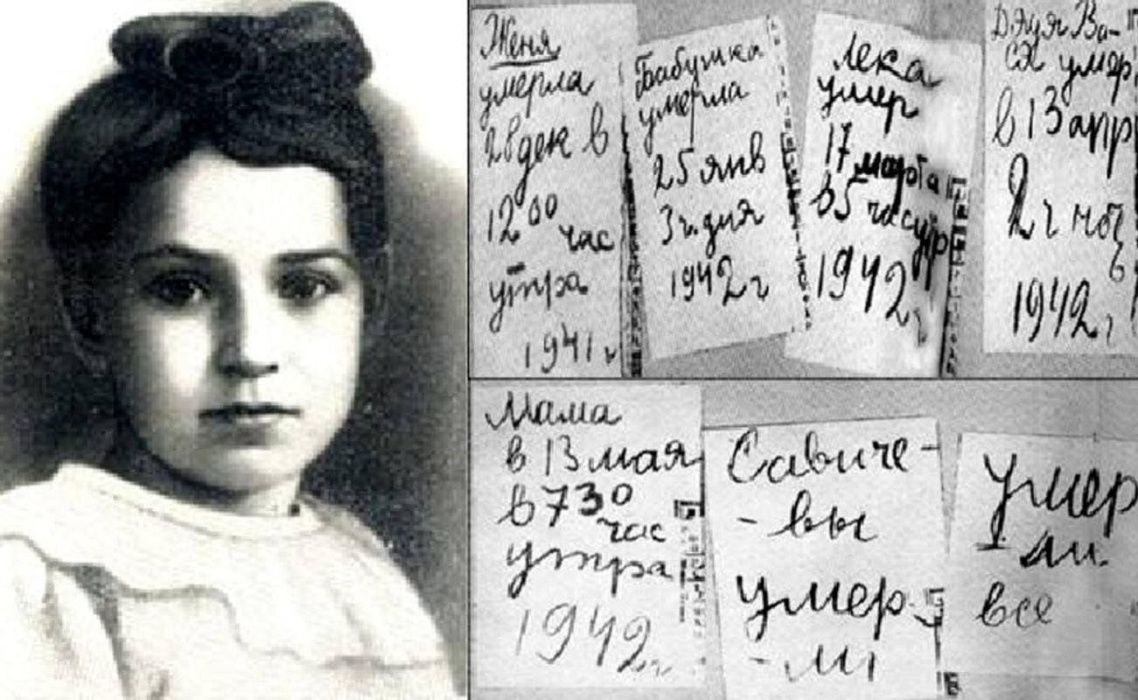 Женя
умерла
28 дек в
12 00 час
утра
1941 г
Бабушка
умерла
25 янв
3 ч. дня
1942 г
Лека
умер
17 марта
в 5 час утр
1942 г
Дядя Ва-
ся умер
в 13 апр
2 ч ноч
1942 г
Мама
в 13 мая
в 7 30
час
утра
1942 г
Савиче-
-вы
умер-
-ли
Умер
-ли
все